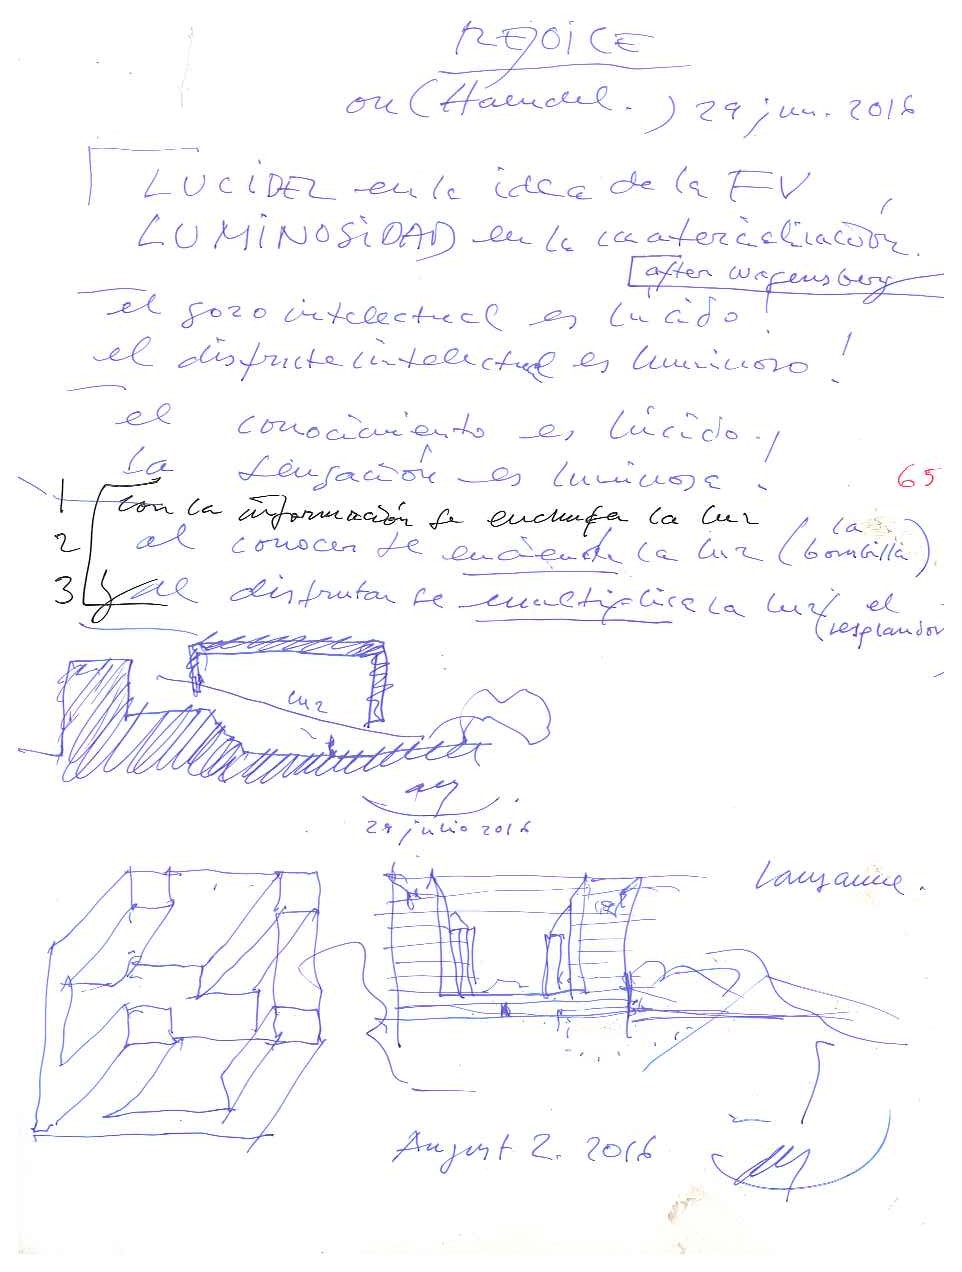 REJOICE
on (Haendel.) 29 jun. 2016
LUCIDEZ en la idea de la
LUMINOSIDAD en la materialización.
after Wagensberg
el gozo intelectual es lúcido!
el disfrute intelectual es luminoso!
el conocimiento es lúcido!
La sensación es luminosa!
65
1 con la información se enchufa la luz
2 al conocer se enciende la luz (la bombilla)
3 y al disfrutar se multiplica la luz (el resplandor
luz
29 julio 2016
Lausanne.
August 2. 2016